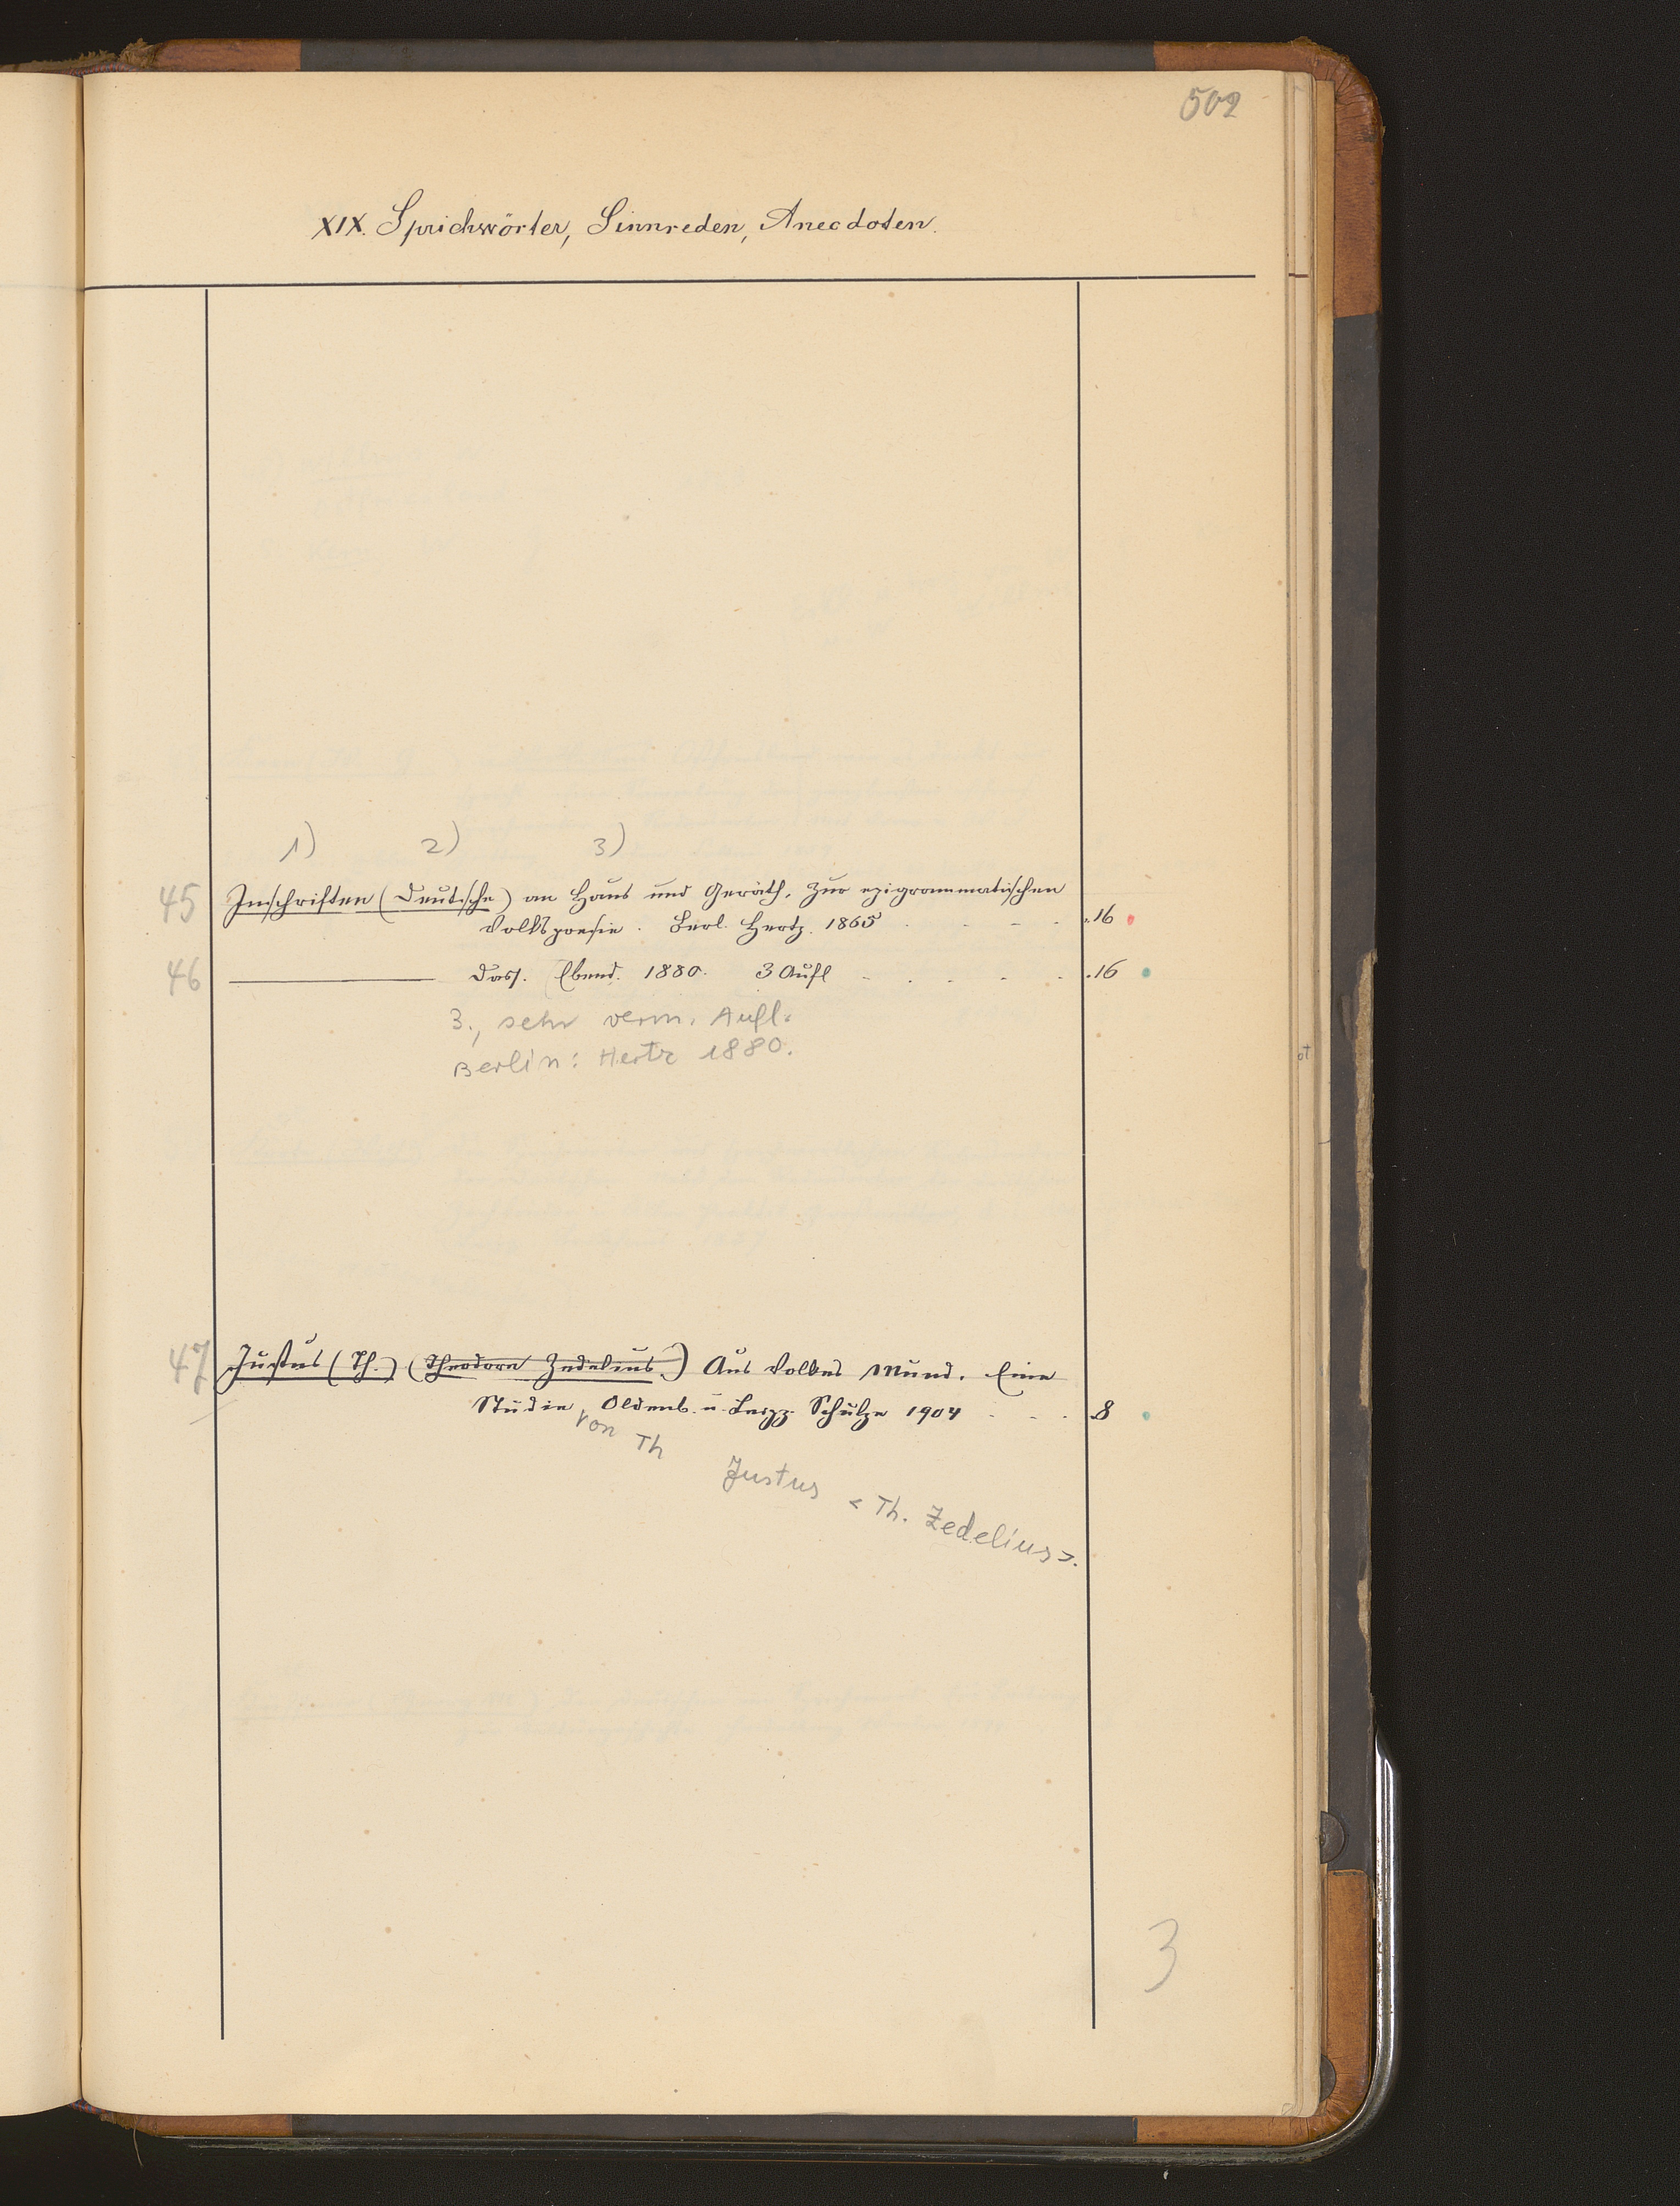 502
XIX. Sprichwörter, Sinnreden, Anecdoten.
1) 2) 3)
45 Inschriften (Deutsche) an Haus und Geräth. Zur epigrammatischen
Volkspoesie. Berl. Hertz. 1865 . - - . .16
46 ——— Dass. Ebend. 1880. 3 Aufl - . . - . .16
3., sehr verm. Aufl.
Berlin: Hertz 1880.
47 Justus (Th.) (Theodore Zedelius.) Aus Volkes Mund. Eine
Studie, Oldenb. u. Leipz. Schulze 1904 . - . .8
von Th Justus < Th. Zedelius >.
ot
3